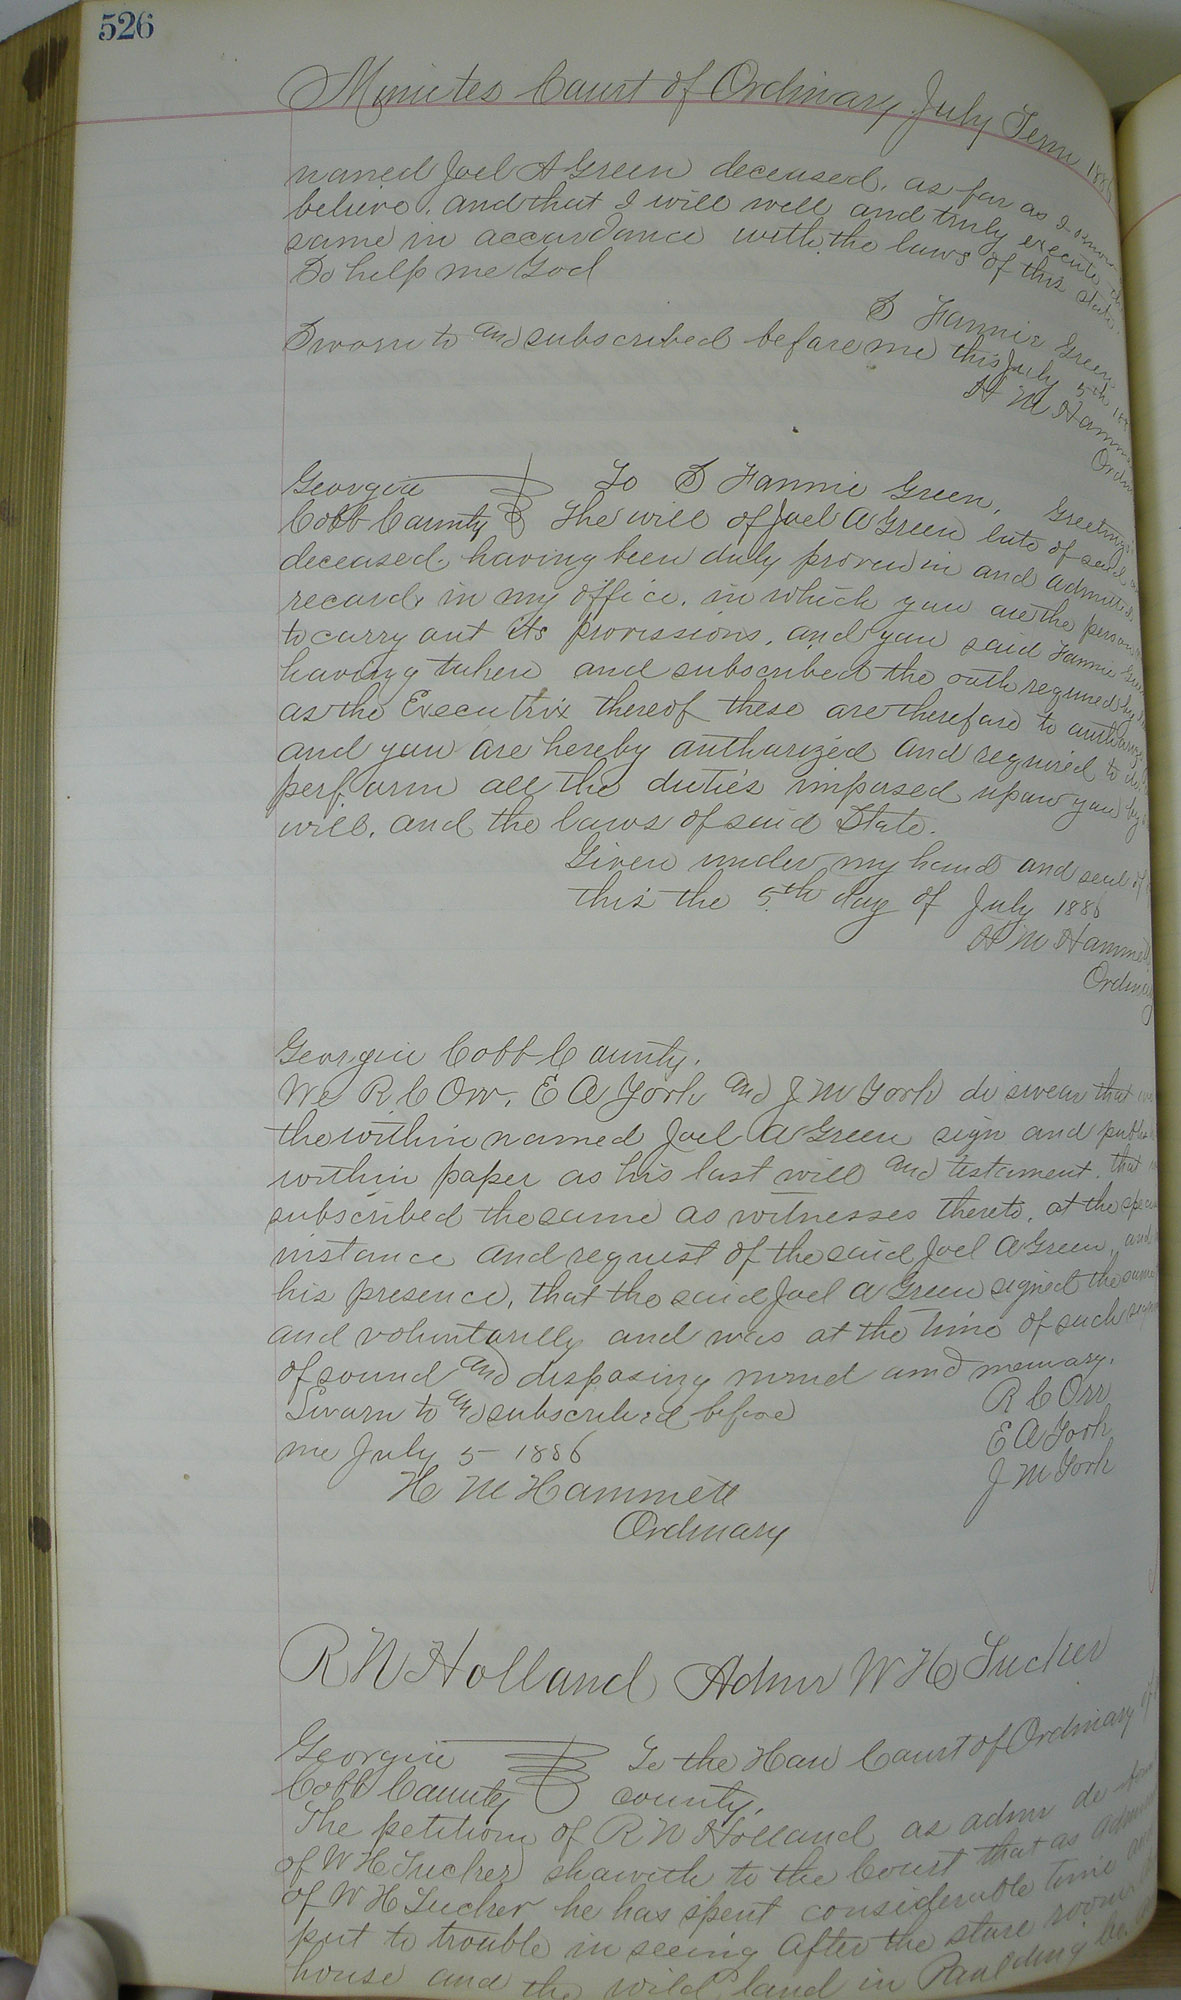 526
Minutes Court of Ordinary July Term 188
named Joel A Green deceased, as far as I know
believe, and that I will well and truly execute
same in accordance with the laws of this State,
So help me God
S Fannie Green
Sworn to and subscribed before me this July 5th 188
H M Hamm
Ordin
Georgia To S Fannie Green, Greeting
Cobb County The will of Joel A Green late of said
deceased, having been duly proven in and admitted
record, in my office, in which you are the person
to carry out its provissions, and you said Fannie Green
having taken and subscribed the oath required by
as the Executrix thereof these are therefore to authorize
and you are hereby authorized and required to do
perform all the duties imposed upon you by
will, and the laws of said State.
Given under my hand and seal of
this the 5th day of July 1886
H M Hammett
Ordinary
Georgia Cobb County.
We R C Orr, E A York and J M York do swear that we
the within named Joel A Green sign and publ
within paper as his last will and testament, that
subscribed the same as witnesses thereto, at the spec
instance and request of the said Joel A Green, and
his presence, that the said Joel A Green signed the same
and voluntarilly and was at the time of such
of sound and disposing mind and memory.
Sworn to and subscribed before R C Orr
me July 5 1886 E A York
H M Hammett J M York
Ordinary
R N Holland Admr W H Tucker
Georgia To the Hon Court of Ordinary of
Cobb County county.
The petition of R N Holland as admr de
of W H Tucker showeth to the Court that as admr
of W H Tucker he has spent considerable time and
put to trouble in seeing after the store room
house and the wild land in Paulding